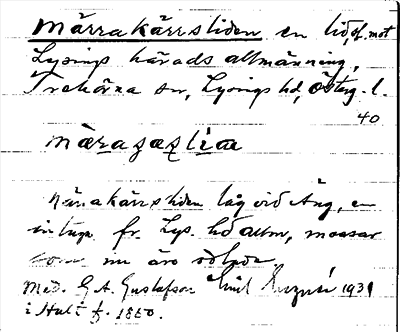 Märrakärrsliden en lid, ö. mot
Lysings härads allmänning,
Trehörna sn, Lysings hd, Österg. l.
40
Märrakärrsliden låg vid Äng, en
intaga fr. Lys. hd allm, mossar
som nu äro odlade.
Med. G. A. Gustafson Emil 1931
i Hult f. 1850.